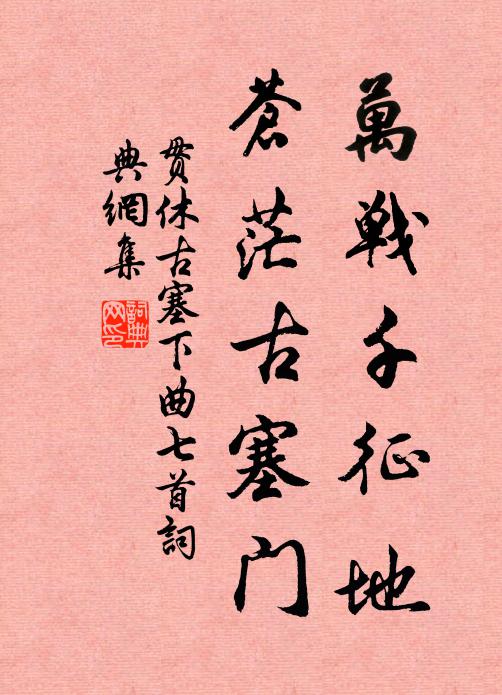 萬戦千征地
蒼茫古塞門
貫休古塞下曲七首詞
典網集
詞典
网印